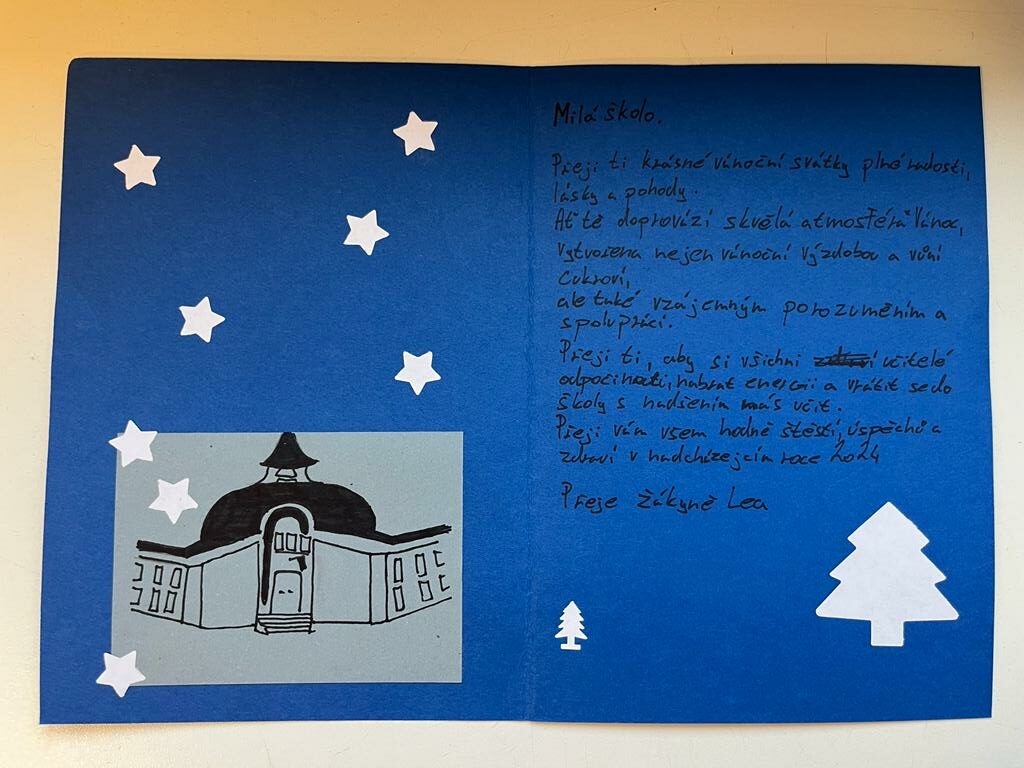 Milá školo.
Přeji ti krásné vánoční svátky plné radosti,
lásky a pohody.
Ať tě doprovází skvělá atmosféra Vánoc,
vytvořena nejen vánoční výzdobou a vůní
cukroví,
ale také vzájemným porozuměním a
spoluprácí.
Přeji ti, aby si všichni učitelé
odpočinouti, nabrat energii a vrátit se do
školy s nadšením nás učit.
Přeji vám všem hodně štěstí, úspěchů a
zdraví v nadcházejcím roce 2024
Přeje žákyně Lea